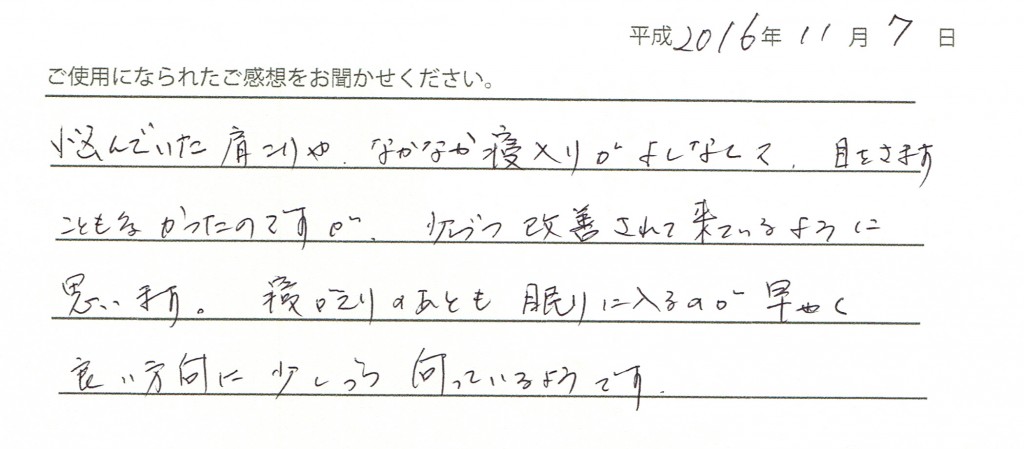 平成2016年 11月 7日
ご使用になられたご感想をお聞かせください。
悩んでいた肩こりや、なかなか寝入りがよしなくて、目をさます
こともなかったのですが、少しづつ改善されて来ているように
思います。 寝返りのあとも眠りに入るのが早やく
良い方向に少しづつ向っているようです。